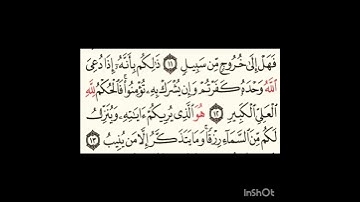 فَهَلْ إِلَىٰ خُرُوجٍ مِّن سَبِيلٍ ۝١١ ذَٰلِكُم بِأَنَّهُۥٓ إِذَا دُعِيَ
ٱللَّهُ وَحْدَهُۥ كَفَرْتُمْ وَإِن يُشْرَكْ بِهِۦ تُؤْمِنُوا۟ ۚ فَٱلْحُكْمُ لِلَّهِ
ٱلْعَلِيِّ ٱلْكَبِيرِ ۝١٢ هُوَ ٱلَّذِى يُرِيكُمْ ءَايَٰتِهِۦ وَيُنَزِّلُ
لَكُم مِّنَ ٱلسَّمَآءِ رِزْقًا ۚ وَمَا يَتَذَكَّرُ إِلَّا مَن يُنِيبُ ۝١٣
InShOt